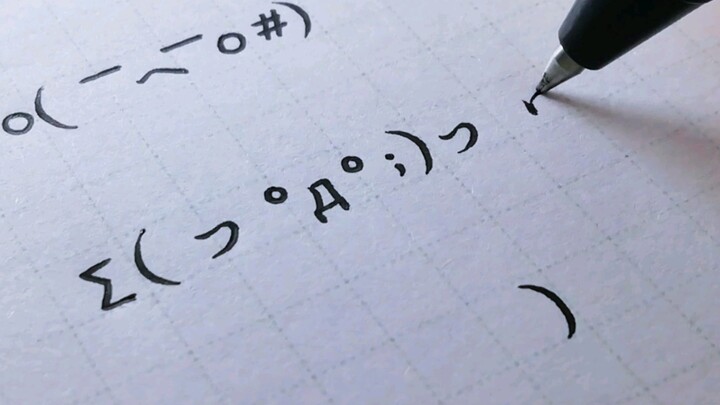 o(一︿一o#)
Σ(っ°Д°;)っ
)